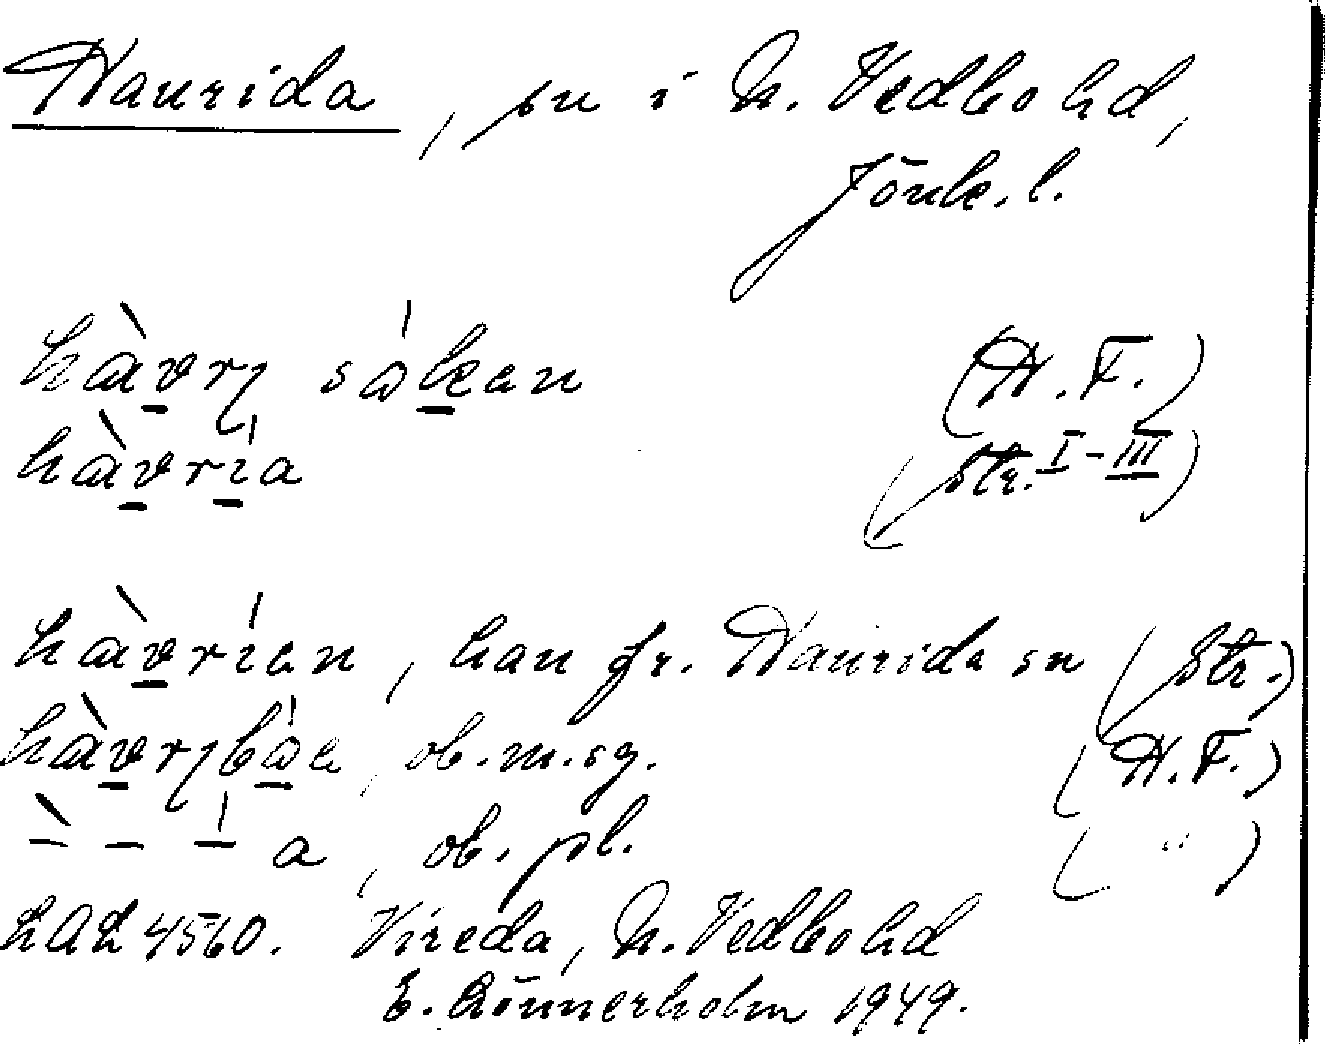 Haurida, sn i N. Vedbohd,
Jönk. l.
hàvrı sɷ́kan (H. F.)
hàvría (Str. I-III)
hàvrían, han fr. Haurida sn (Str.)
hàvrıbɷ́a, ob. m. sg. (H. F.)
— — — a, ob. pl. ( " )
LAL 4560. Vireda, N. Vedbohd
E. Rönnerholm 1949.